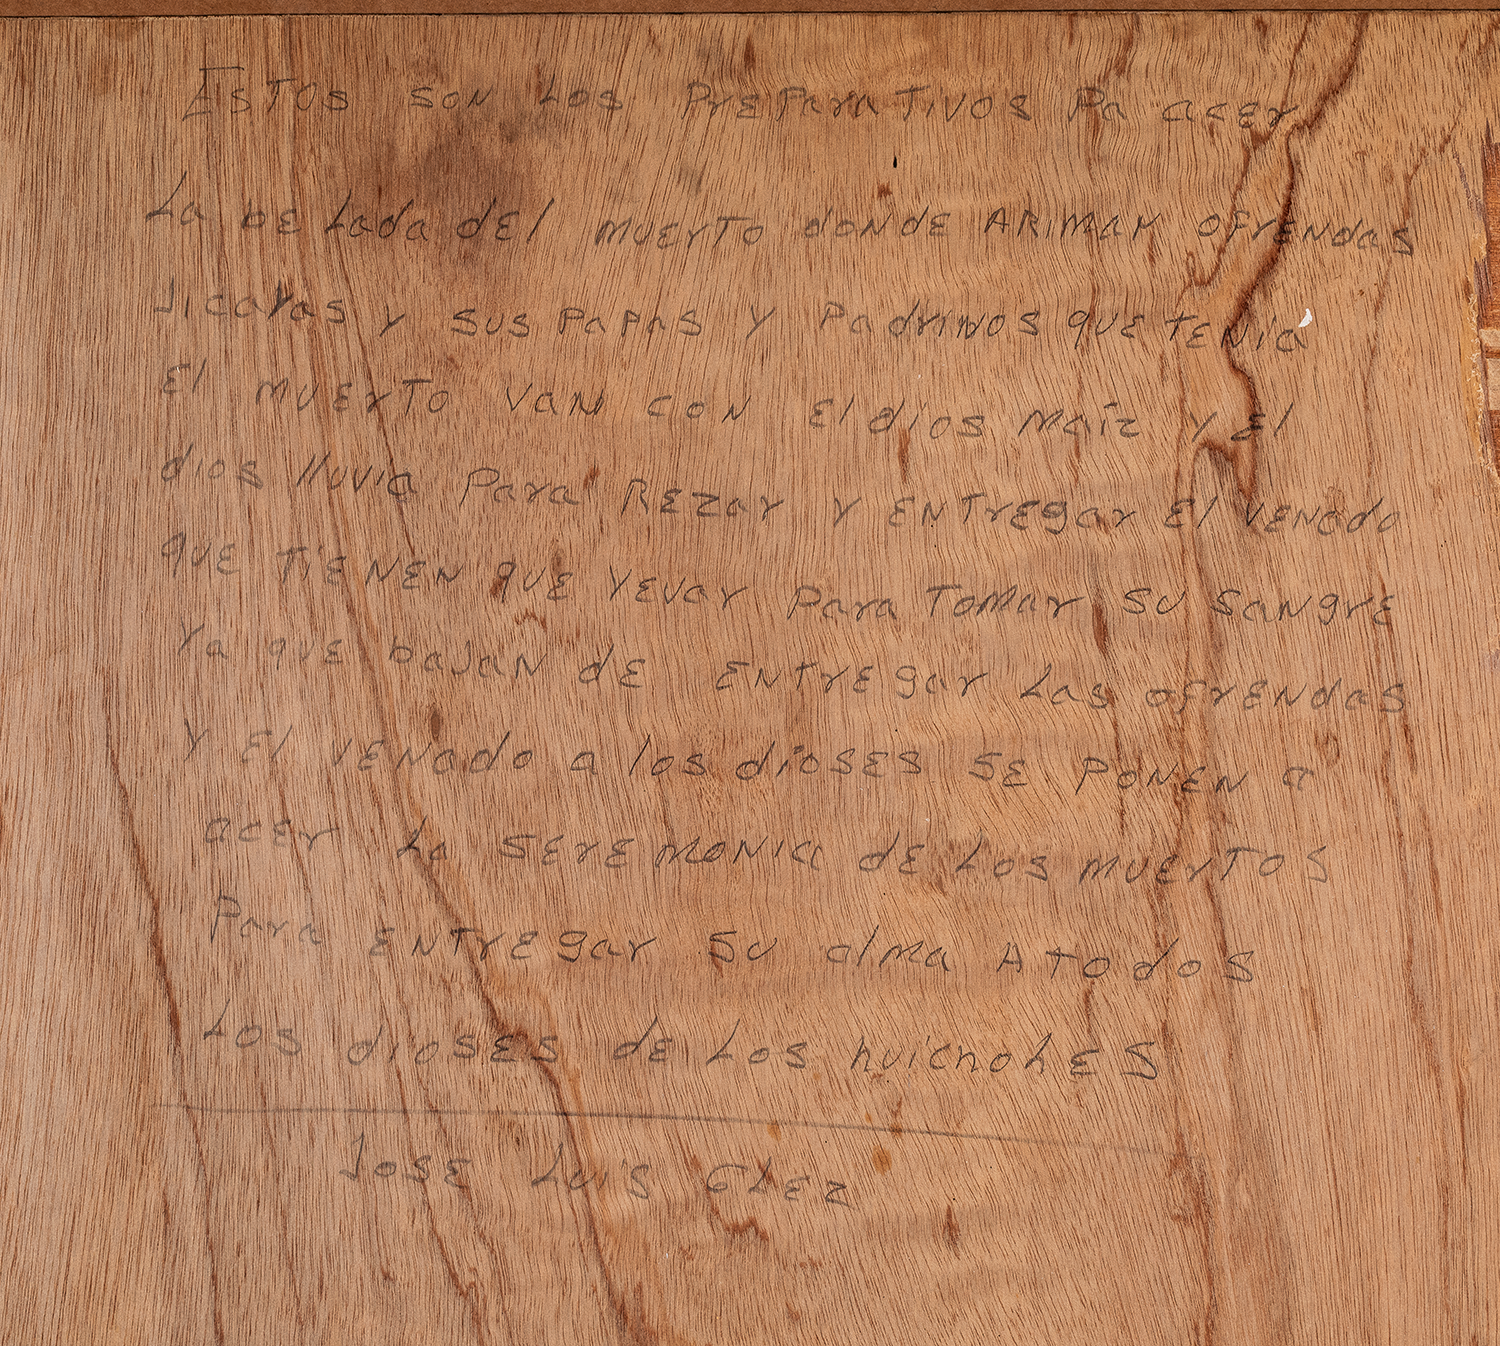 Estos son los preparativos pa acer
La be lada del muerto donde ARiman ofrendas
Jicaras y sus papas y padrinos que tenia
El muerto van con El dios maiz y el
dios lluvia para Rezar y entregar El venado
que tienen que yevar para tomar su sangre
ya que bajan de entregar las ofrendas
y el venado a los dioses se ponen a
acer la seremonia de los muertos
Para entregar su alma A todos
Los dioses de los huicholes
Jose Luis Glez